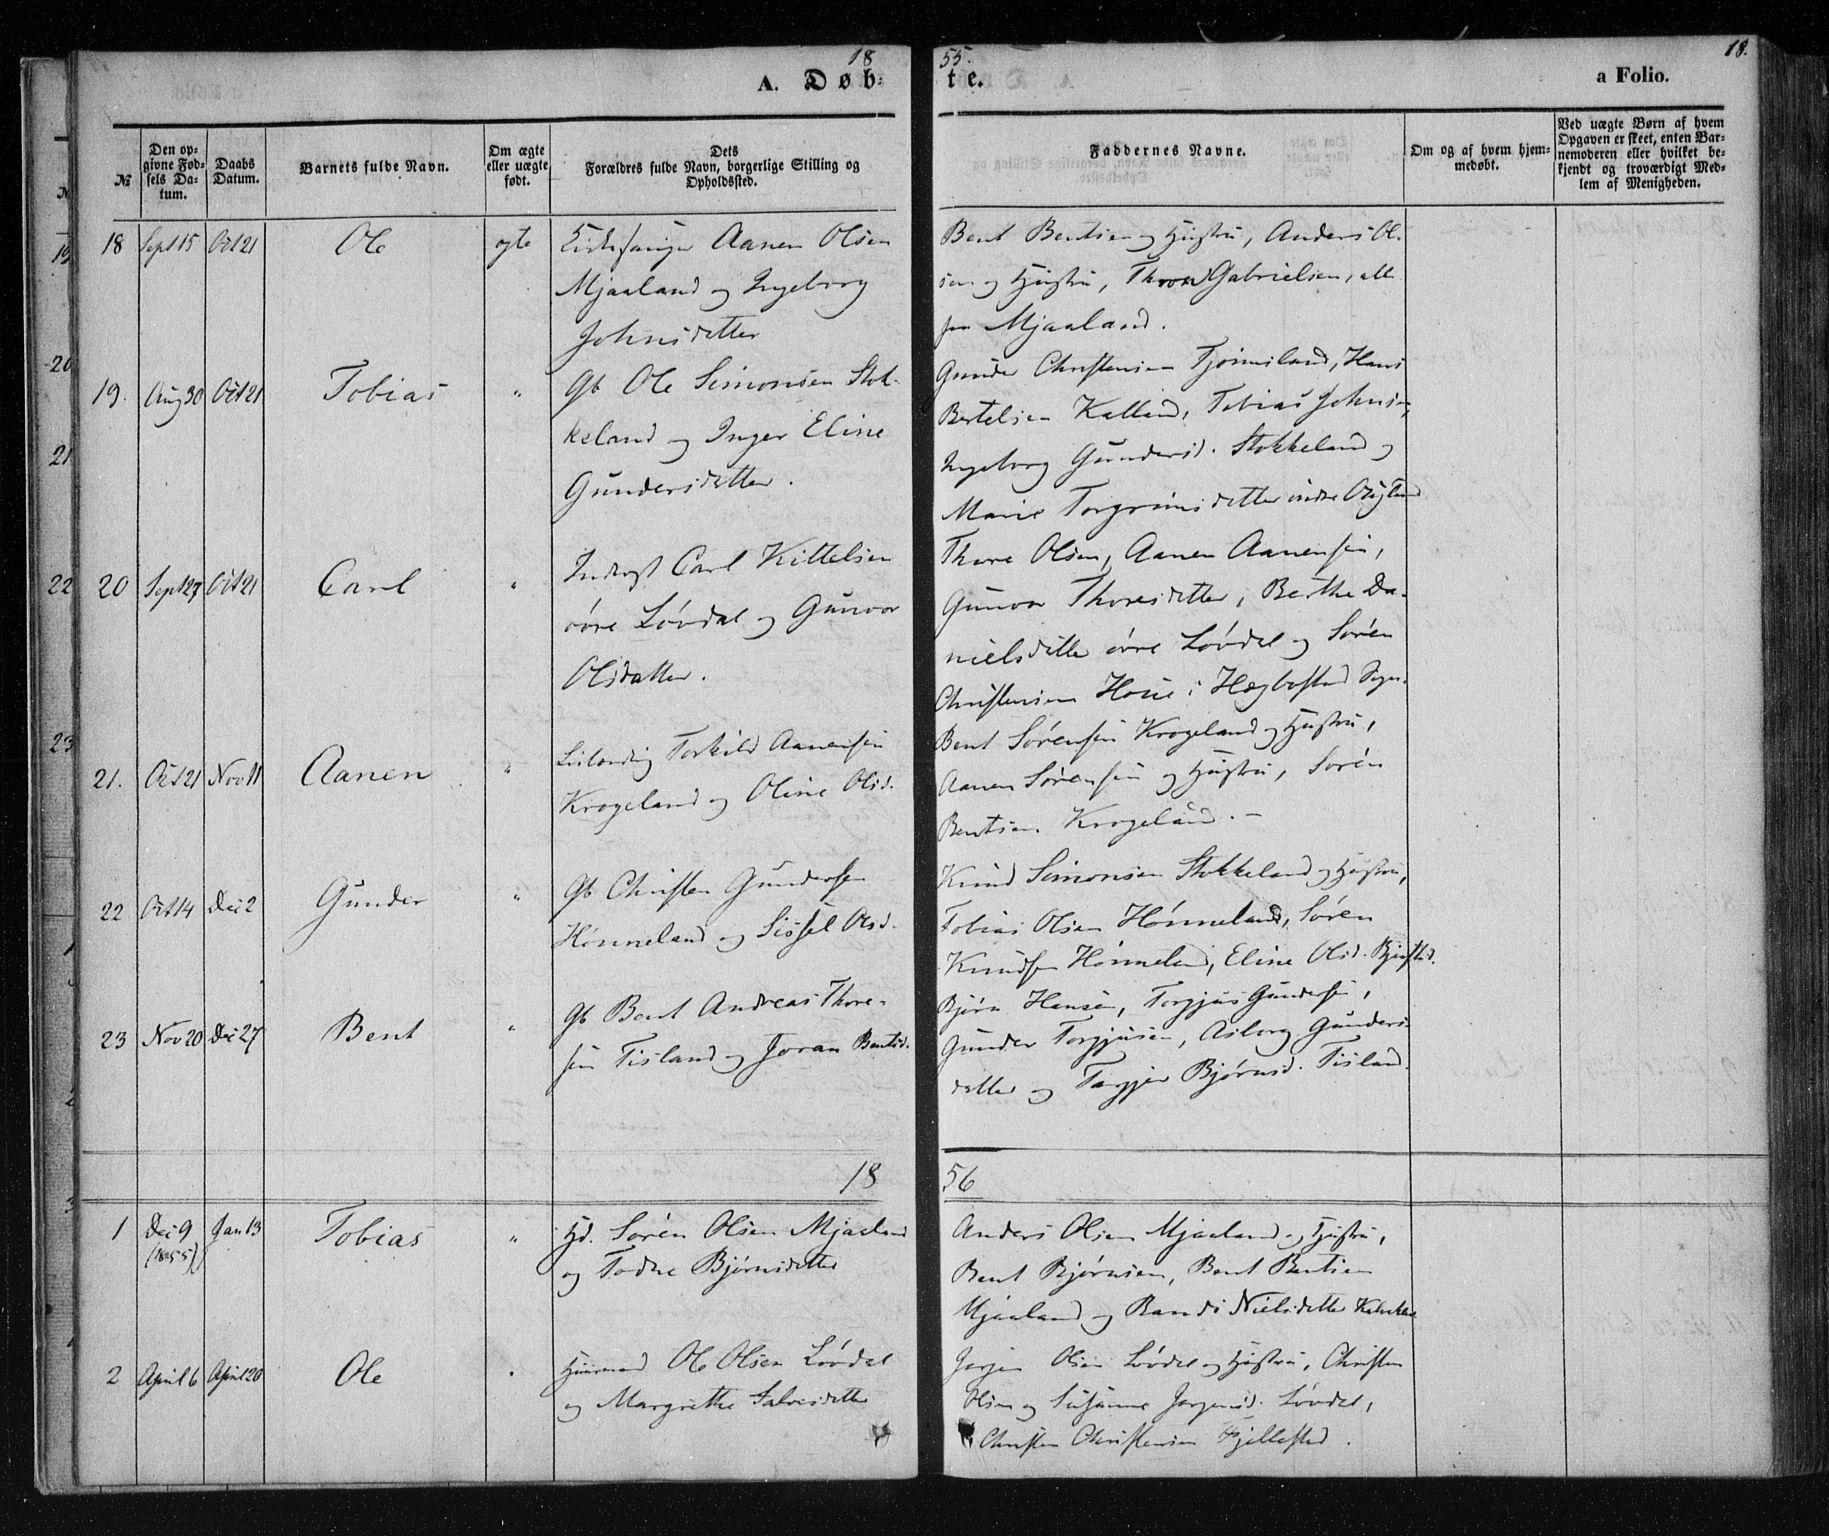 18 55. 18.
A. Døb- te. a Folio.
№ Den op-givne Fød-sels Da-tum. Daabs Datum. Barnets fulde Navn. Om ægte eller uægte født. Dets Forældres fulde Navn, borgerlige Stilling og Opholdssted. Faddernes Navne. Om og af hvem hjem-medøbt. Ved uægte Børn af hvem Opgaven er skeet, enten Bar-nemoderen eller hvilket be-kjendt og troværdigt Med-lem af Menigheden.
18 Sept 15 Oct 21 Ole ægte Aanen Olsen
Mjaaland og Ingeborg
Johnsdatter
Bent Bentsen og Hustru, Anders Ol-
sen og Hustru, Gabrielsen, alle
Mjaaland.
19. Aug 30 Oct 21 Tobias " Gb Ole Simonsen Stok-
keland og Inger Eline
Gundersdatter.
Gunder Christensen Hans
Bertelsen Kalland, Tobias Johns
Ingeborg Gundersd. Stokkeland og
Marie Torgrimsdatter indre
20 Sept 27 Oct 21 Carl " Inderst Carl Kittelsen
øvre Løvdal og Gunvor
Olsdatter.
Thore Olsen, Aanen Aanensen,
Gunvor Thoresdatter, Berthe Da-
nielsdatter øvre Løvdal og Søren
Christensen Houe i Hægbostad Sogn.
21. Oct 21 Nov 11 Aanen " Torkild Aanensen
Krogeland og Oline Olsd.
Bent Sørensen Krogeland og Hustru,
Aanen Sørensen og Hustru, Søren
Bentsen Krogeland. –
22 Oct 14 Dec 2 Gunder " Gb Christen Gundersen
Hønneland og Sissel Olsd.
Knud Simonsen Stokkeland og Hustru,
Tobias Olsen Hønneland, Søren
Knudsen Hønneland, Eline Olsd.
23 Nov 20 Dec 27 Bent " Gb Bent Andreas Thore-
sen Tisland og Joran Bentsd.
Bjørn Hansen, Torgjus Gundersen,
Gunder Torgjusen, Asborg Gunders-
datter og Bjørnsd. Tisland.
18 56
1 Dec 9 (1855) Jan 13 Tobias " Hd. Søren Olsen Mjaaland
og Todne Bjørnsdatter
Anders Olsen Mjaaland og Hustru,
Bent Bjørnsen, Bent Bentsen
Mjaaland og Randi Nielsdatter
2 April 6 April 20 Ole " Huusmand Ole Olsen Løvdal
og Margrethe Salvesdatter
Jørgen Olsen Løvdal og Hustru, Christen
Olsen og Susanne Jørgensd. Løvdal,
Christen Christensen Fjellestad.
19
20
21
22
23